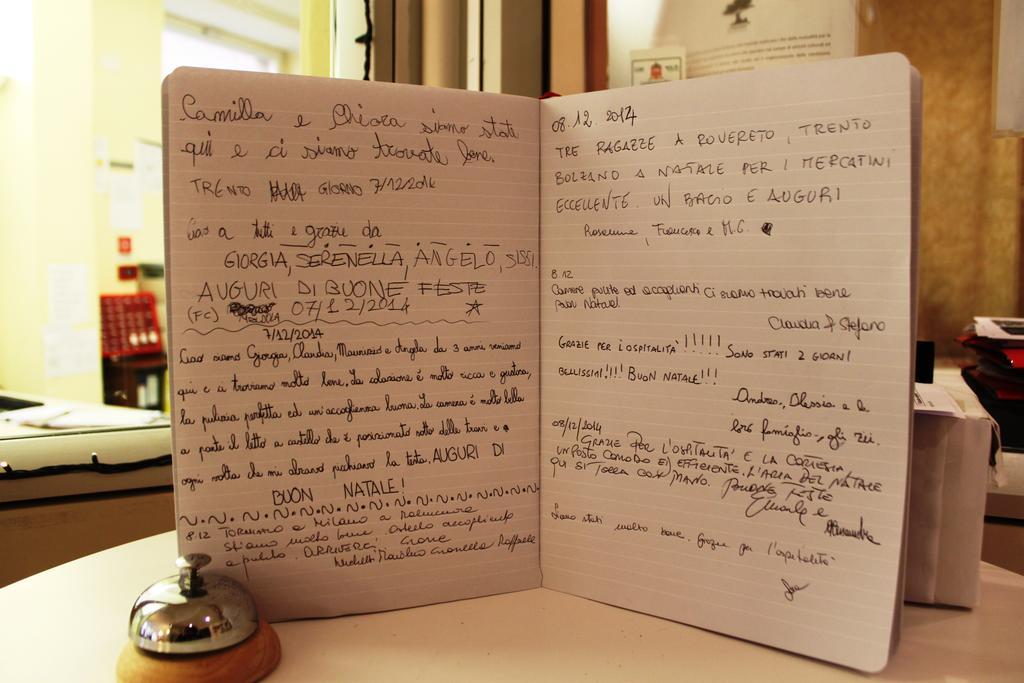 Camilla e Chiara siamo state
qui e ci siamo trovate bene.
TRENTO GIORNO 7/12/2014
Ciao a tutti e grazie da
GIORGIA, SERENELLA, ANGELO, SISSI.
AUGURI DI BUONE FESTE
(FC) 07/12/2014
7/12/2014
Ciao siamo Giorgia, Claudia, Maurizio e Angela da 3 anni veniamo
qui e ci troviamo molto bene. La colazione è molto ricca e gustosa,
la pulizia perfetta ed un'accoglienza buona. La camera è molto bella
a parte il letto a castello che è posizionato sotto delle travi e
ogni volta che mi alzavo picchiavo la testa. AUGURI DI
BUON NATALE!
8.12 TORNIAMO a Milano a malincuore
Stiamo molto bene. Ostello accogliente
e pulito. ARRIVERCI. Grazie
08.12.2014
TRE RAGAZZE A ROVERETO, TRENTO
BOLZANO A NATALE PER I MERCATINI
ECCELLENTE. UN BACIO E AUGURI
Rosanna, Francesca e M.G.
8.12
Camere pulite ed accoglienti ci siamo trovati bene
Buon Natale!
Claudia & Stefano
GRAZIE PER L'OSPITALITÀ !!!!!! SONO STATI 2 GIORNI
BELLISSIMI!!!! BUON NATALE!!!
Andrea, Alessia e la
loro famiglia, gli zii.
08/12/2014
GRAZIE PER L'OSPITALITÀ E LA CORTESIA!
UN POSTO COMODO ED EFFICIENTE. L'ARIA DEL NATALE
QUI SI TOCCA CON MANO. BUONE FESTE
e
Alessandra
Siamo stati molto bene. Grazie per l'ospitalità